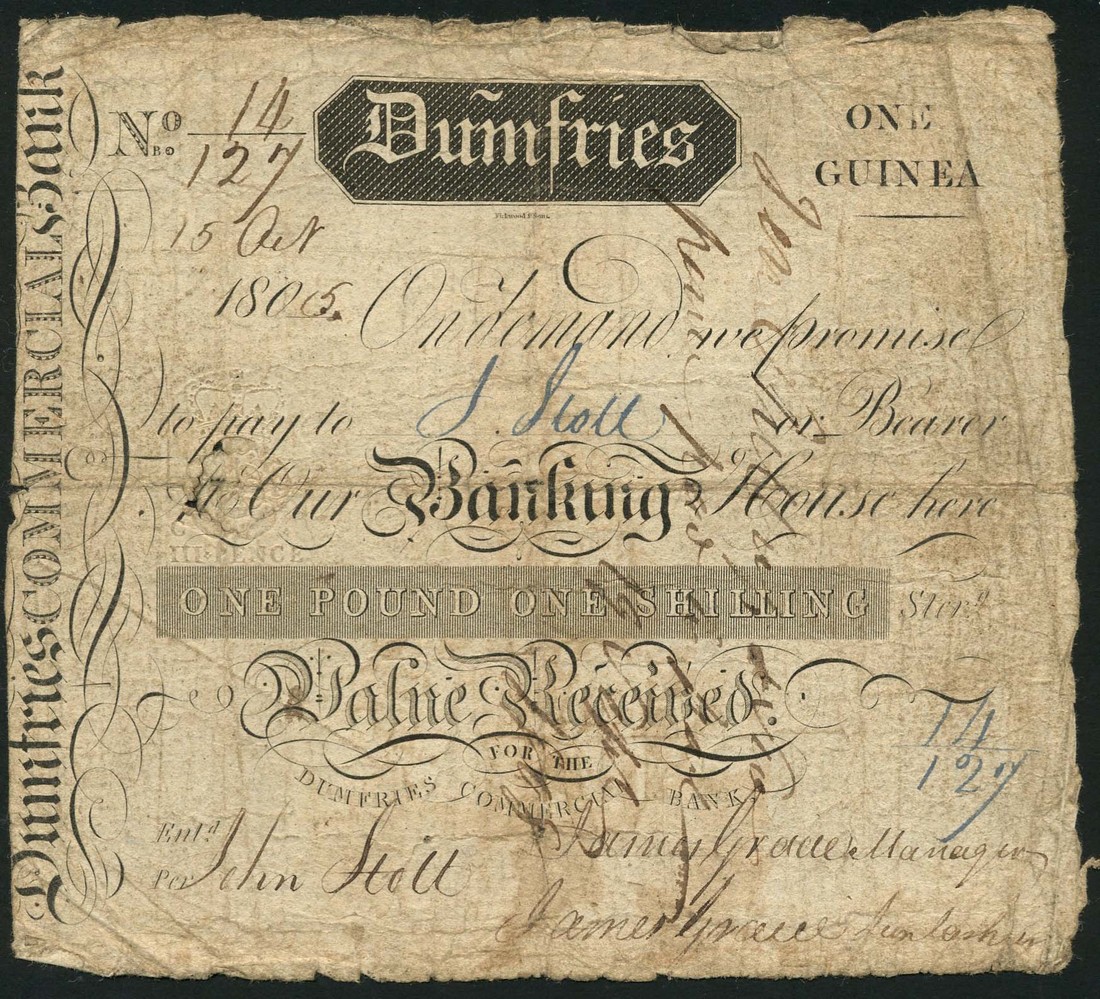 Dumfries COMMERCIAL Bank
No. 14
B. 127
Dumfries
ONE
GUINEA
15 Oct
1805.
On demand we promise
to pay to J. Stott or Bearer
At Our Banking House here
III·PENCE
ONE POUND ONE SHILLING Sterg
Value Received.
FOR THE
DUMFRIES COMMERCIAL BANK,
14
127
Entd
Per John Stott
James Gracie Manager
James Gracie Jun Cashier